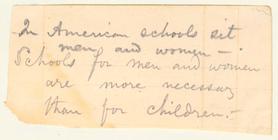 In American schools sit
men and women —
Schools for men and women
are more necessary
than for children. -